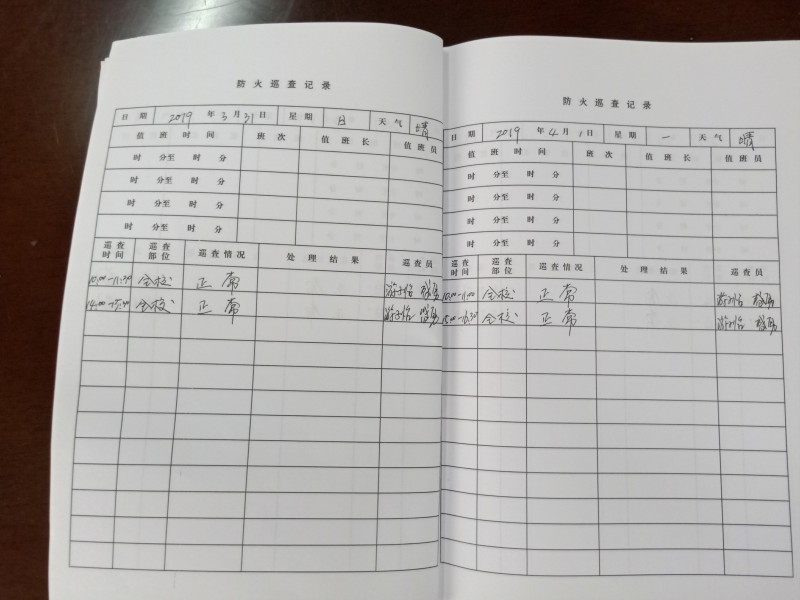 防火巡查记录
日期 2019年3月31日 星期 日 天气 晴
值班时间 班次 值班长 值班员
时 分至 时 分
时 分至 时 分
时 分至 时 分
时 分至 时 分
巡查时间 巡查部位 巡查情况 处理结果 巡查员
10:00-11:00 全校 正常
14:00-15:00 全校 正常
防火巡查记录
日期 2019年4月1日 星期 一 天气 晴
值班时间 班次 值班长 值班员
时 分至 时 分
时 分至 时 分
时 分至 时 分
时 分至 时 分
巡查时间 巡查部位 巡查情况 处理结果 巡查员
10:00-11:00 全校 正常
15:00-16:30 全校 正常